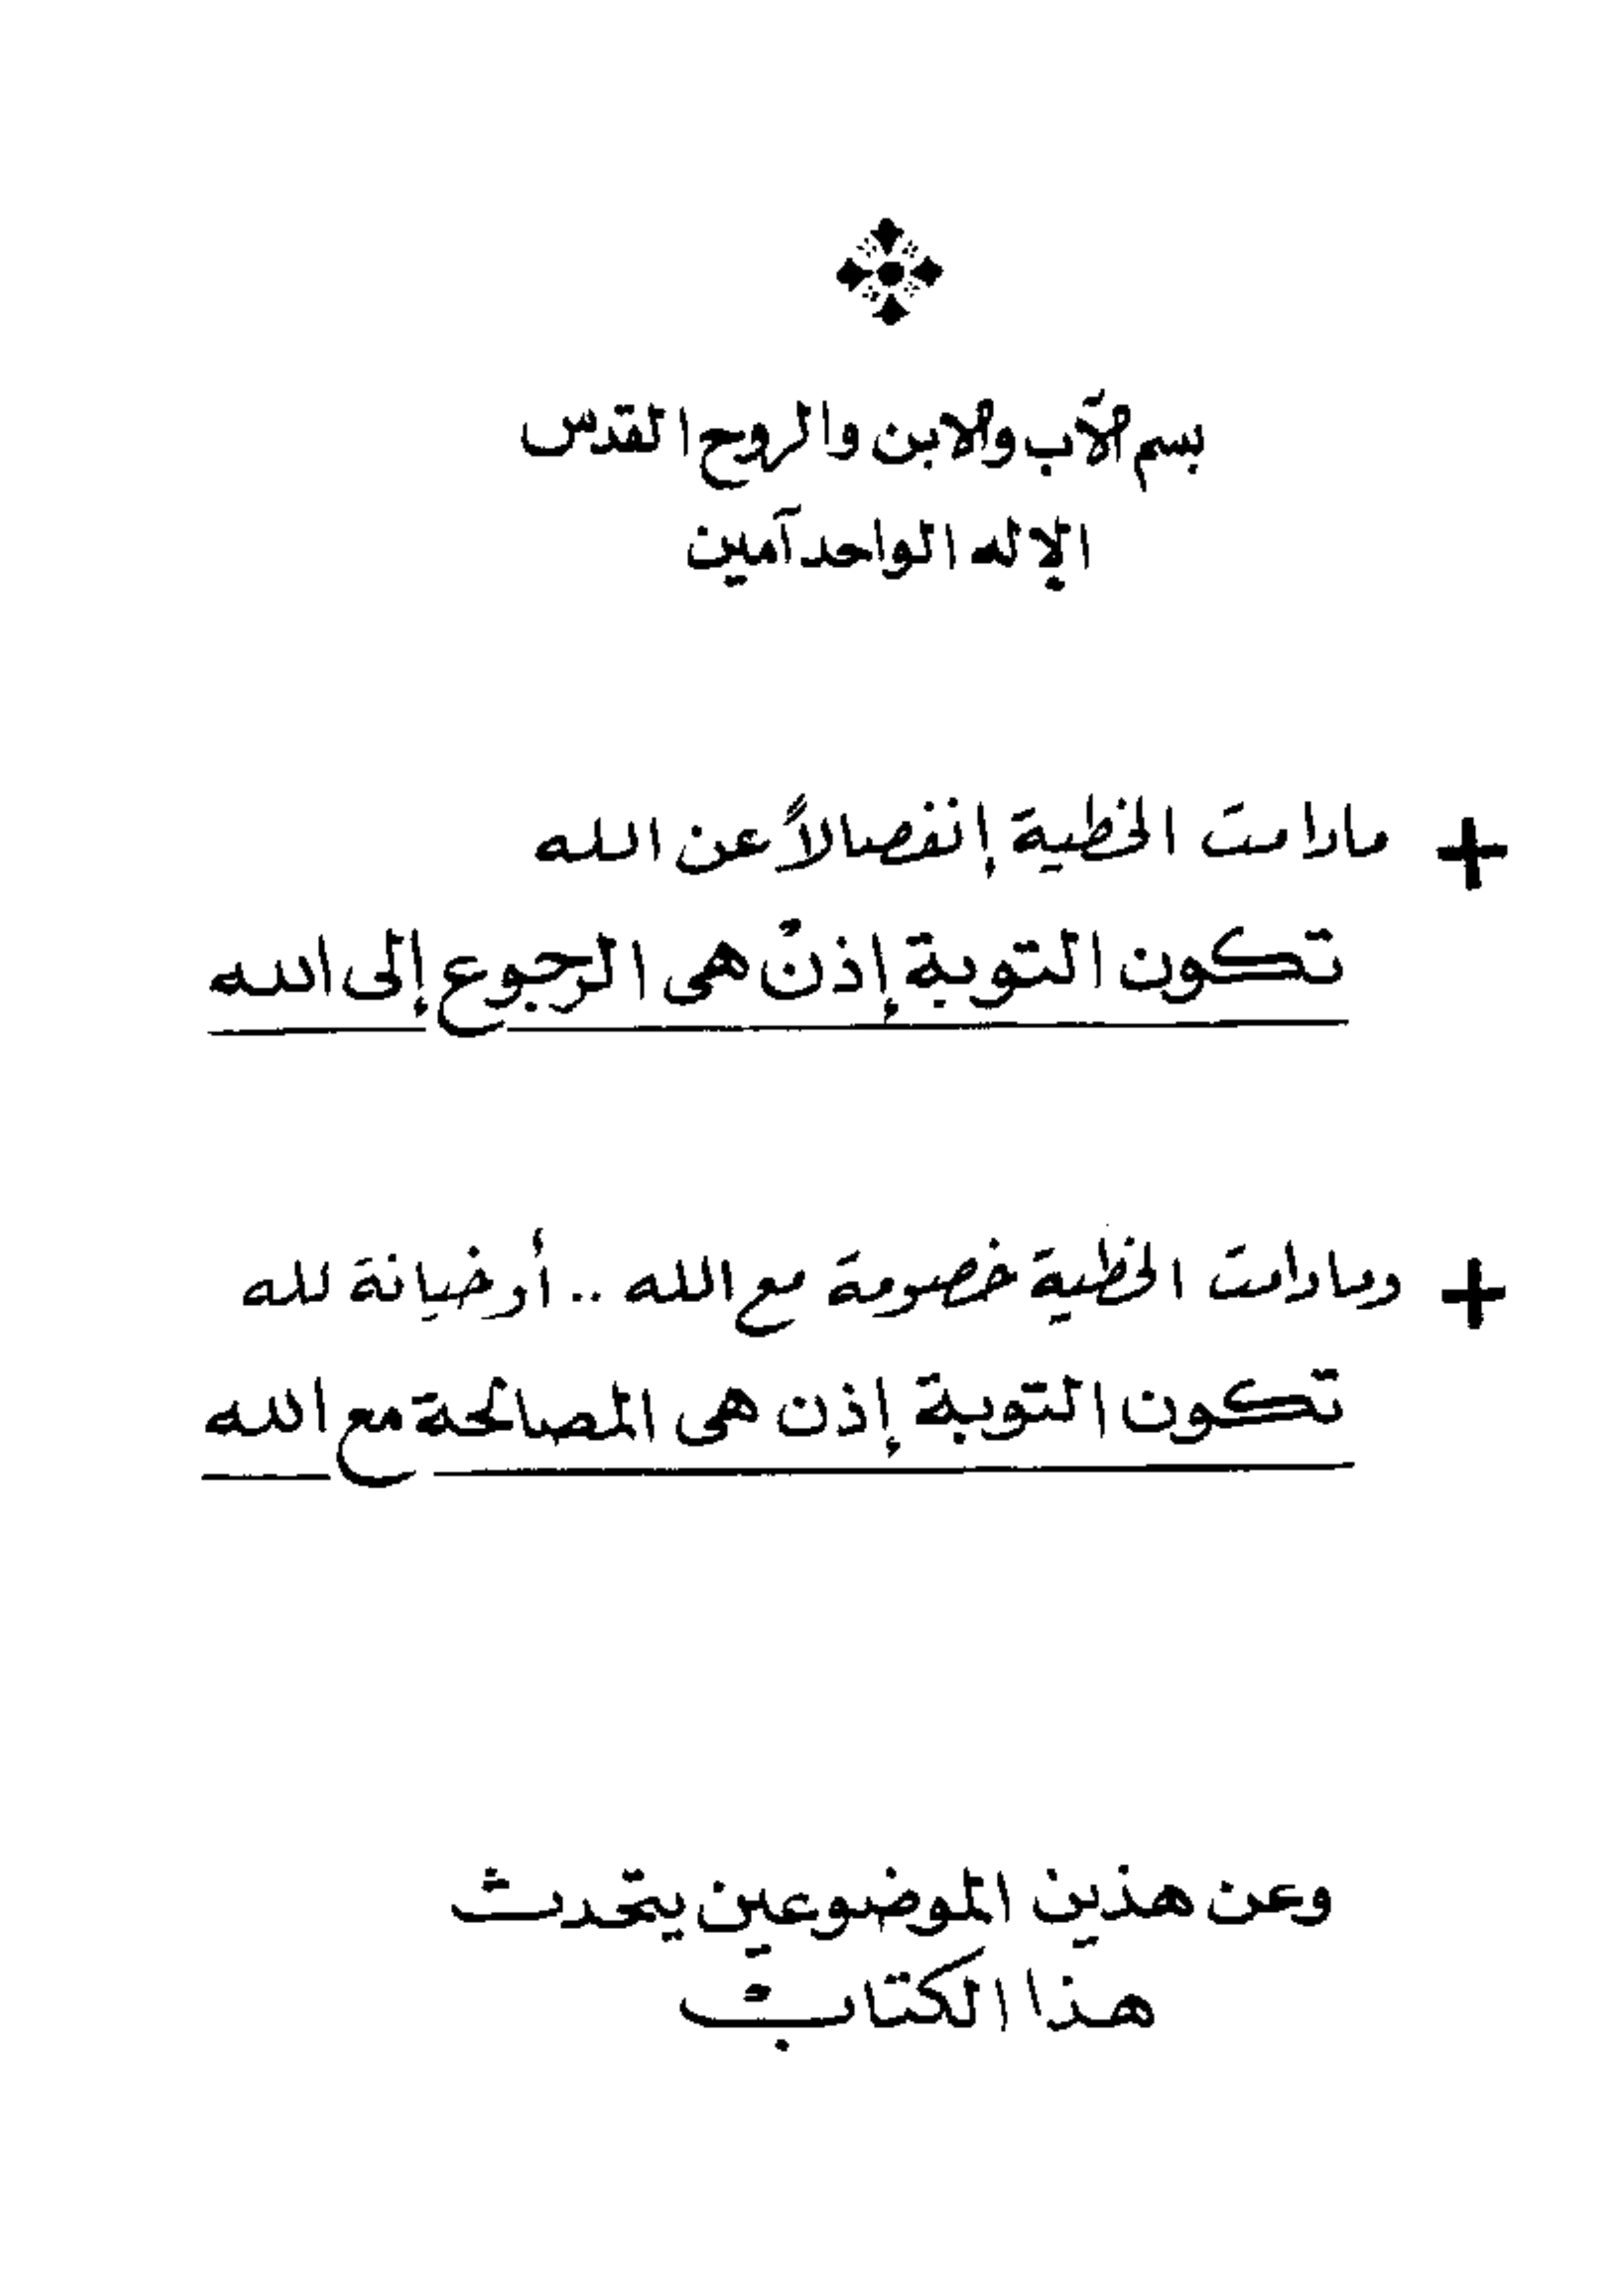 بسم الآب والابن والروح القدس
الإله الواحد آمين
+ مادامت الخطية إنفصالاً عن الله
تكون التوبة إذنْ هى الرجوع إلى الله
+ ومادامت الخطية خصومة مع الله .. أو خيانة لله
تكون التوبة إذن هى المصالحة مع الله
وعن هذين الموضوعين يتحدث
هذا الكتاب